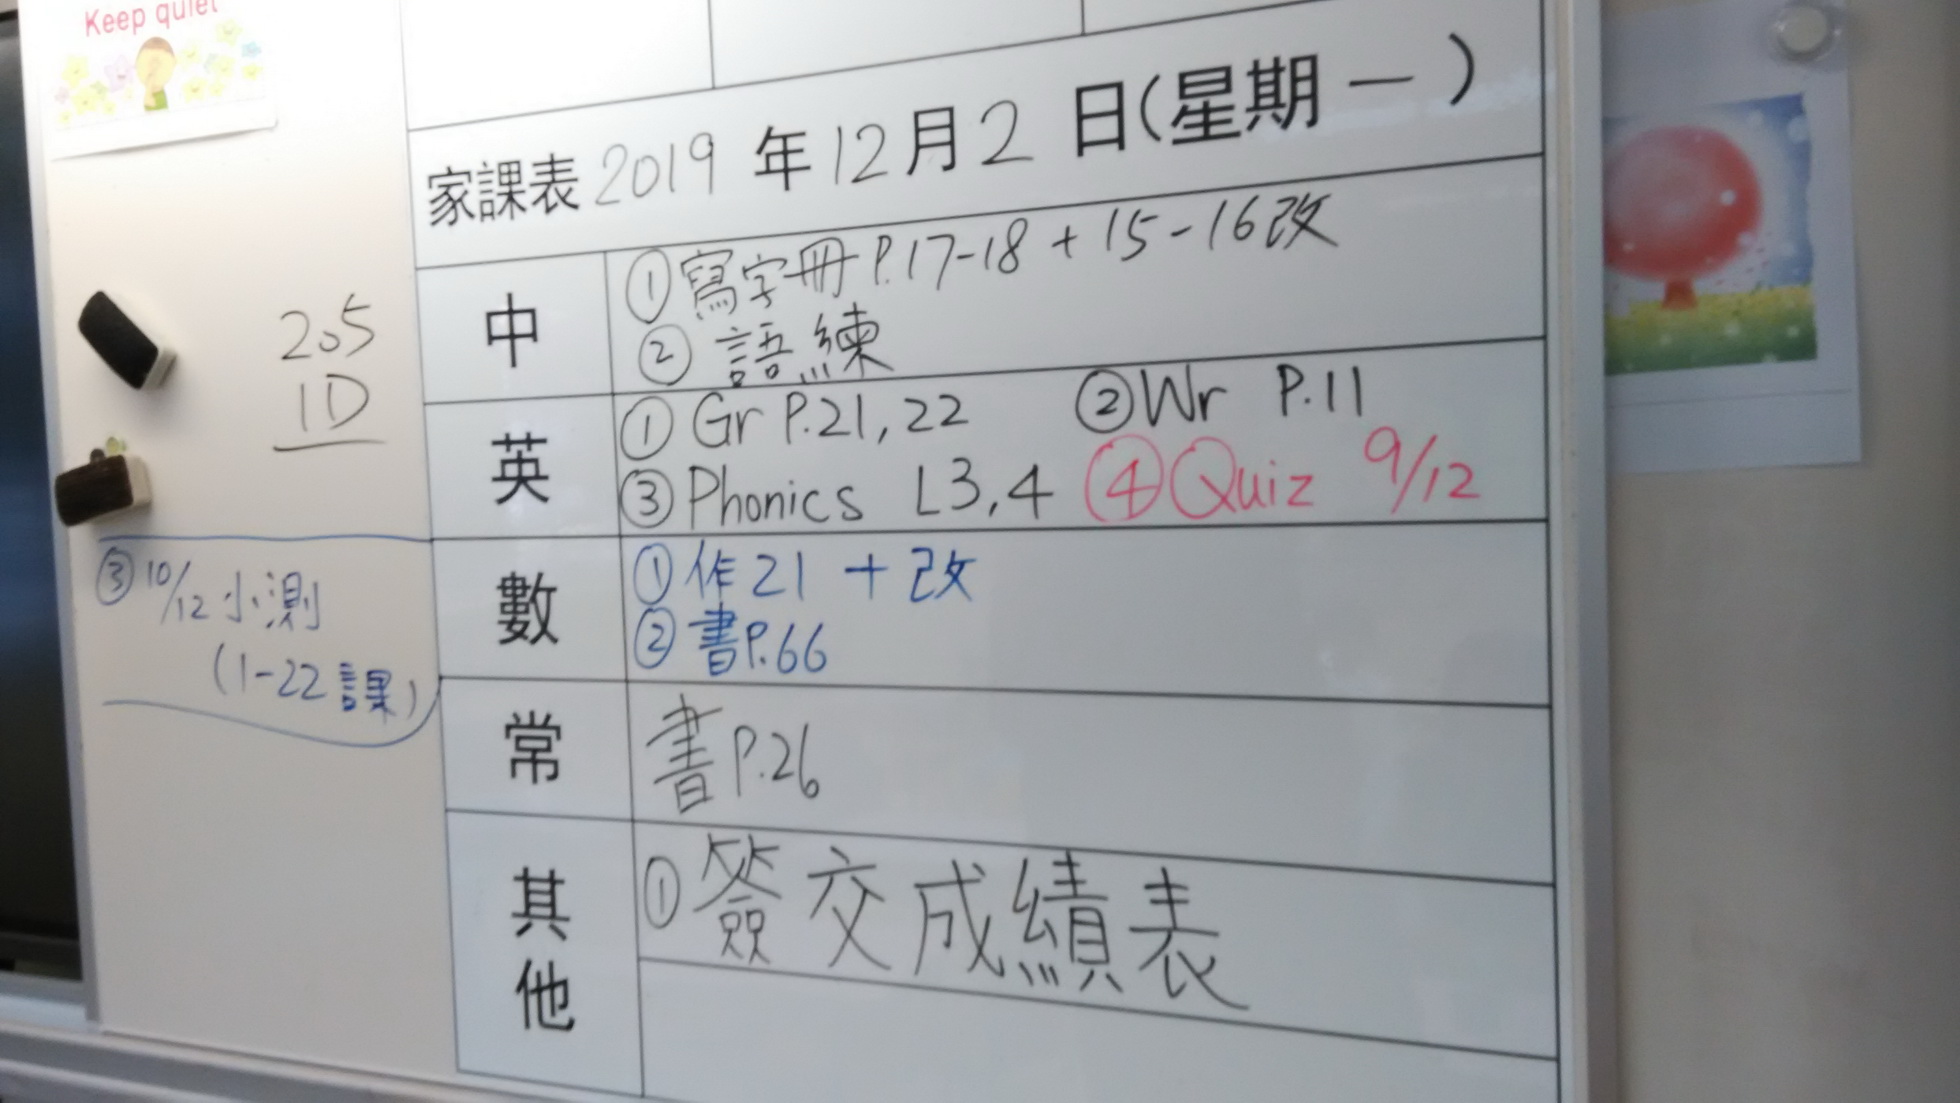 Keep quiet
家課表 2019 年 12 月 2 日(星期一)
中
①寫字冊 P.17-18 + 15-16改
② 語練
205
1D
英
① Gr P.21, 22 ②Wr P.11
③ Phonics L3, 4 ④Quiz 9/12
數
①作21 + 改
②書P.66
③ 10/12 小測
(1-22課)
常
書 P.26
其他
①簽交成績表